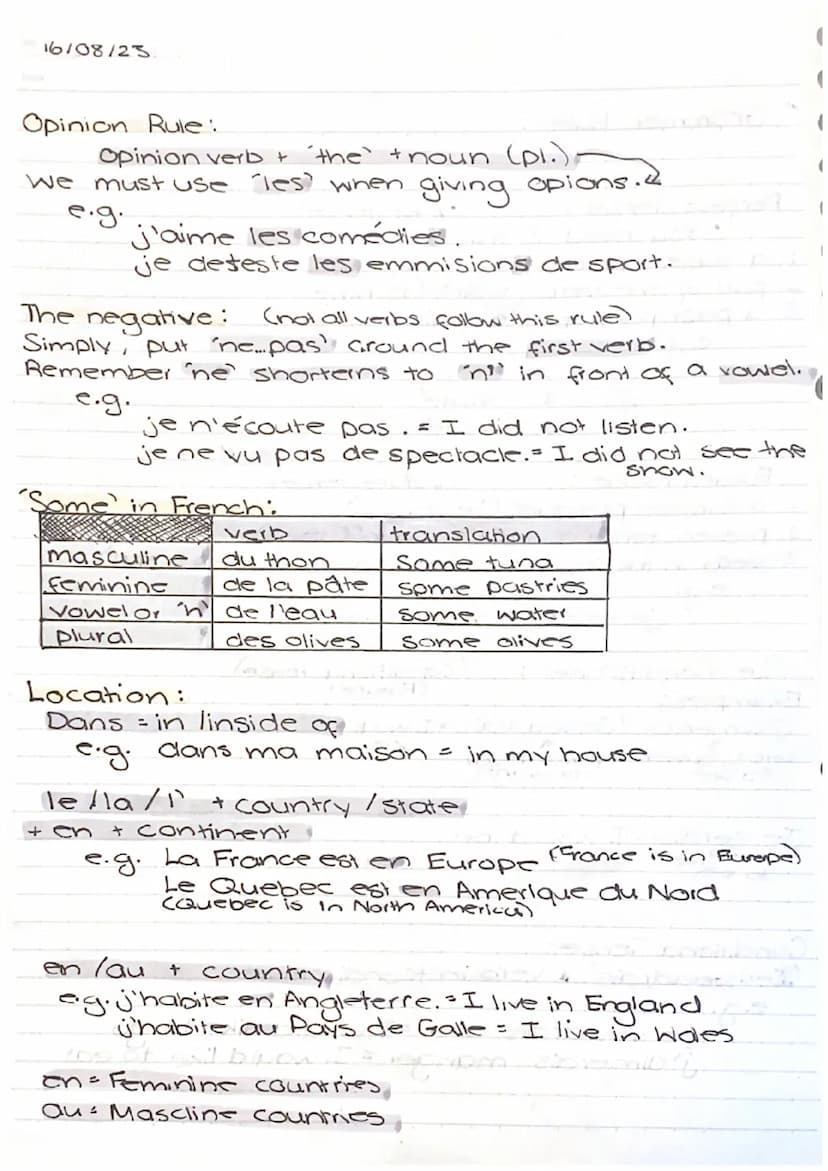 16/08/23
Opinion Rule:
Opinion verb + 'the' + noun (pl.)
We must use 'les' when giving opions.
e.g.
j'aime les comédies.
je deteste les emmisions de sport.
The negative: (not all verbs follow this rule)
Simply, put 'ne...pas' around the first verb.
Remember 'ne' shorterns to 'n'' in front of a vowel.
e.g.
je n'écoute pas. = I did not listen.
je ne vu pas de spectacle. = I did not see the
show.
'Some' in French:
verb translation
masculine du thon some tuna
feminine de la pâte some pastries
vowel or 'h' de l'eau some water
plural des olives some olives
Location:
Dans = in / inside of
e.g. dans ma maison = in my house
le / la / l' + country / state
+ en + continent
e.g. La France est en Europe (France is in Europe)
Le Quebec est en Amerique du Nord
(Quebec is in North America)
en / au + country
e.g. j'habite en Angleterre. = I live in England
j'habite au Pays de Galle = I live in Wales
en = Feminine countires
au = Mascline countries